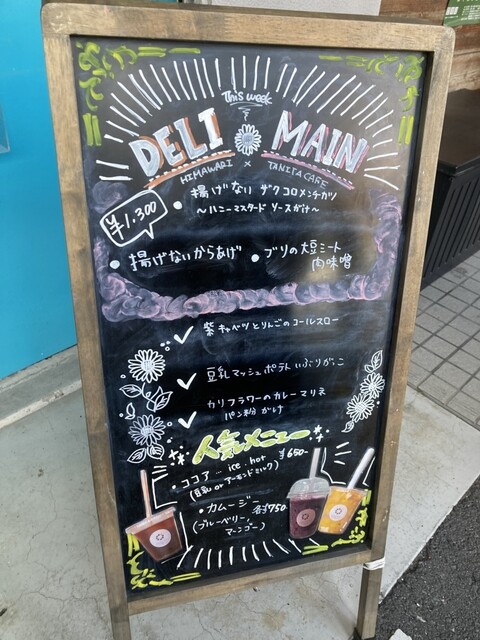 This week
DELI MAIN
HIMAWARI × TANITA CAFE
¥1.300
・揚げない ザクコロメンチカツ
〜ハニーマスタード ソースがけ〜
・揚げないからあげ ・ブリの大豆ミート
肉味噌
✓ 紫キャベツとりんごのコールスロー
✓ 豆乳マッシュポテト いぶりがっこ
✓ カリフラワーのカレーマリネ
パン粉がけ
人気メニュー
・ココア… ice.hot ¥650-
(豆乳 or アーモンドミルク)
・カムージー 各¥750-
(ブルーベリー,
マンゴー)